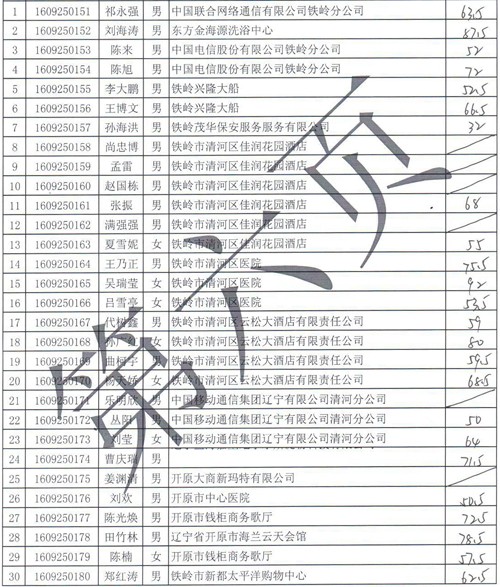 1 1609250151 祁永强 男 中国联合网络通信有限公司铁岭分公司 63.5
2 1609250152 刘海涛 男 东方金海源洗浴中心 87.5
3 1609250153 陈来 男 中国电信股份有限公司铁岭分公司 52
4 1609250154 陈旭 男 中国电信股份有限公司铁岭分公司 72
5 1609250155 李大鹏 男 铁岭兴隆大船 52.5
6 1609250156 王博文 男 铁岭兴隆大船 66.5
7 1609250157 孙海洪 男 铁岭茂华保安服务服务有限公司 32
8 1609250158 尚忠博 男 铁岭市清河区佳润花园酒店
9 1609250159 孟雷 男 铁岭市清河区佳润花园酒店
10 1609250160 赵国栋 男 铁岭市清河区佳润花园酒店
11 1609250161 张振 男 铁岭市清河区佳润花园酒店 68
12 1609250162 满强强 男 铁岭市清河区佳润花园酒店
13 1609250163 夏雪妮 女 铁岭市清河区佳润花园酒店 55
14 1609250164 王乃正 男 铁岭市清河区医院 75.5
15 1609250165 吴瑞莹 女 铁岭市清河区医院 92
16 1609250166 吕雪亭 女 铁岭市清河区医院 53.5
17 1609250167 代树鑫 男 铁岭市清河区云松大酒店有限责任公司 59
18 1609250168 女 铁岭市清河区云松大酒店有限责任公司 80
19 1609250169 曲柯宇 男 铁岭市清河区云松大酒店有限责任公司 59.5
20 1609250170 杨天娇 女 铁岭市清河区云松大酒店有限责任公司 68.5
21 1609250171 乐明欣 男 中国移动通信集团辽宁有限公司清河分公司
22 1609250172 丛阳 男 中国移动通信集团辽宁有限公司清河分公司 50
23 1609250173 刘莹 女 中国移动通信集团辽宁有限公司清河分公司 64
24 1609250174 曹庆瑞 男 71.5
25 1609250175 姜渊清 男 开原大商新玛特有限公司
26 1609250176 刘欢 男 开原市中心医院 50.5
27 1609250177 陈光焕 男 开原市钱柜商务歌厅 72.5
28 1609250178 田竹林 男 辽宁省开原市海兰云天会馆 78.5
29 1609250179 陈楠 女 开原市钱柜商务歌厅 57.5
30 1609250180 郑红涛 男 铁岭市新都太平洋购物中心 62.5
第六页